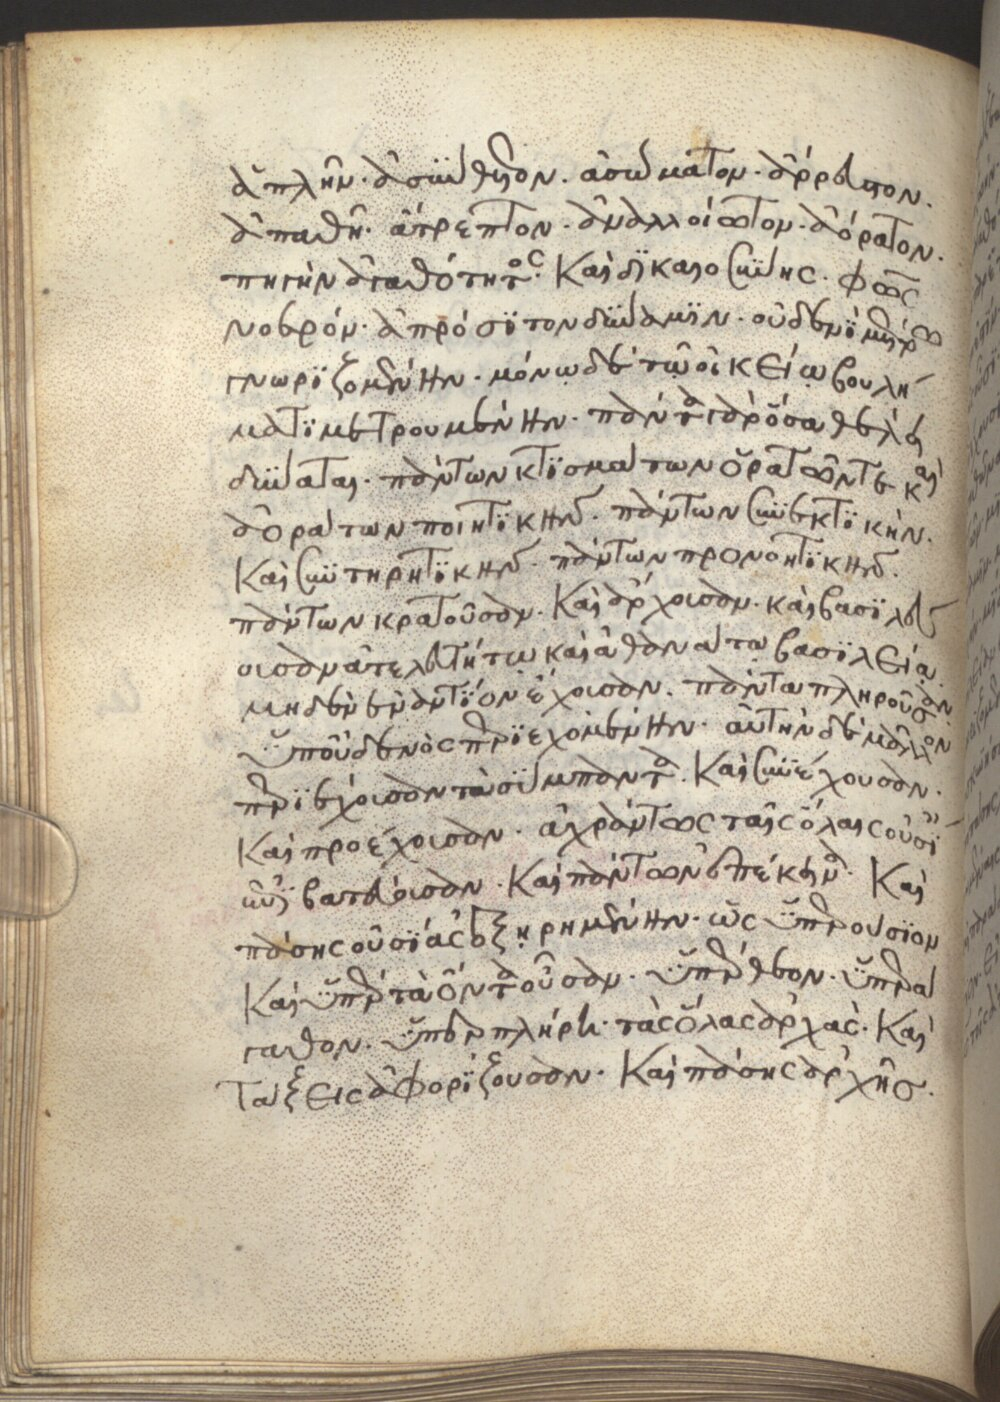 ἁπλῆν· ἀσύνθετον. ἀσώματον. ἄρρευστον.
ἀπαθῆ· ἄτρεπτον. ἀναλλοίωτον. ἀόρατον.
πηγὴν ἀγαθότητος. Καὶ δικαιοσύνης. φῶς
νοερόν· ἀπρόσιτον δύναμιν. οὐδενὶ μέτρω
γνωριζομένην. μόνω δὲ τῶ οἰκείω βουλή
ματι μετρουμένην. πάντα γὰρ ὅσα θέλει
δύναται. πάντων κτισμάτων ὁρατῶν τε καὶ
ἀοράτων ποιητικήν. πάντων συνεκτικήν.
Καὶ συντηρητικήν. πάντων προνοητικήν.
πάντων κρατοῦσαν. Καὶ ἄρχουσαν. καὶ βασιλεύ
ουσαν ἀτελευτήτω καὶ ἀθανάτω βασιλεία.
μηδὲν ἐναντίον ἔχουσαν. πάντα πληροῦσαν.
ὑπ' οὐδενὸς περιεχομένην. αὐτὴν δὲ μᾶλλον
περιέχουσαν τὰ σύμπαντα. Καὶ συνέχουσαν.
Καὶ προέχουσαν. ἀχράντως ταῖς ὅλαις οὐσί
αις ἐπιβατεύουσαν. Καὶ πάντων ἐπέκεινα. Καὶ
πάσης οὐσίας ἐξηρημένην. ὡς ὑπερούσιον
Καὶ ὑπὲρ τὰ ὄντα οὖσαν. ὑπέρθεον. ὑπερά
γαθον. ὑπερπλήρη. τὰς ὅλας ἀρχὰς. Καὶ
Τάξεις ἀφορίζουσαν. Καὶ πάσης ἀρχῆς.